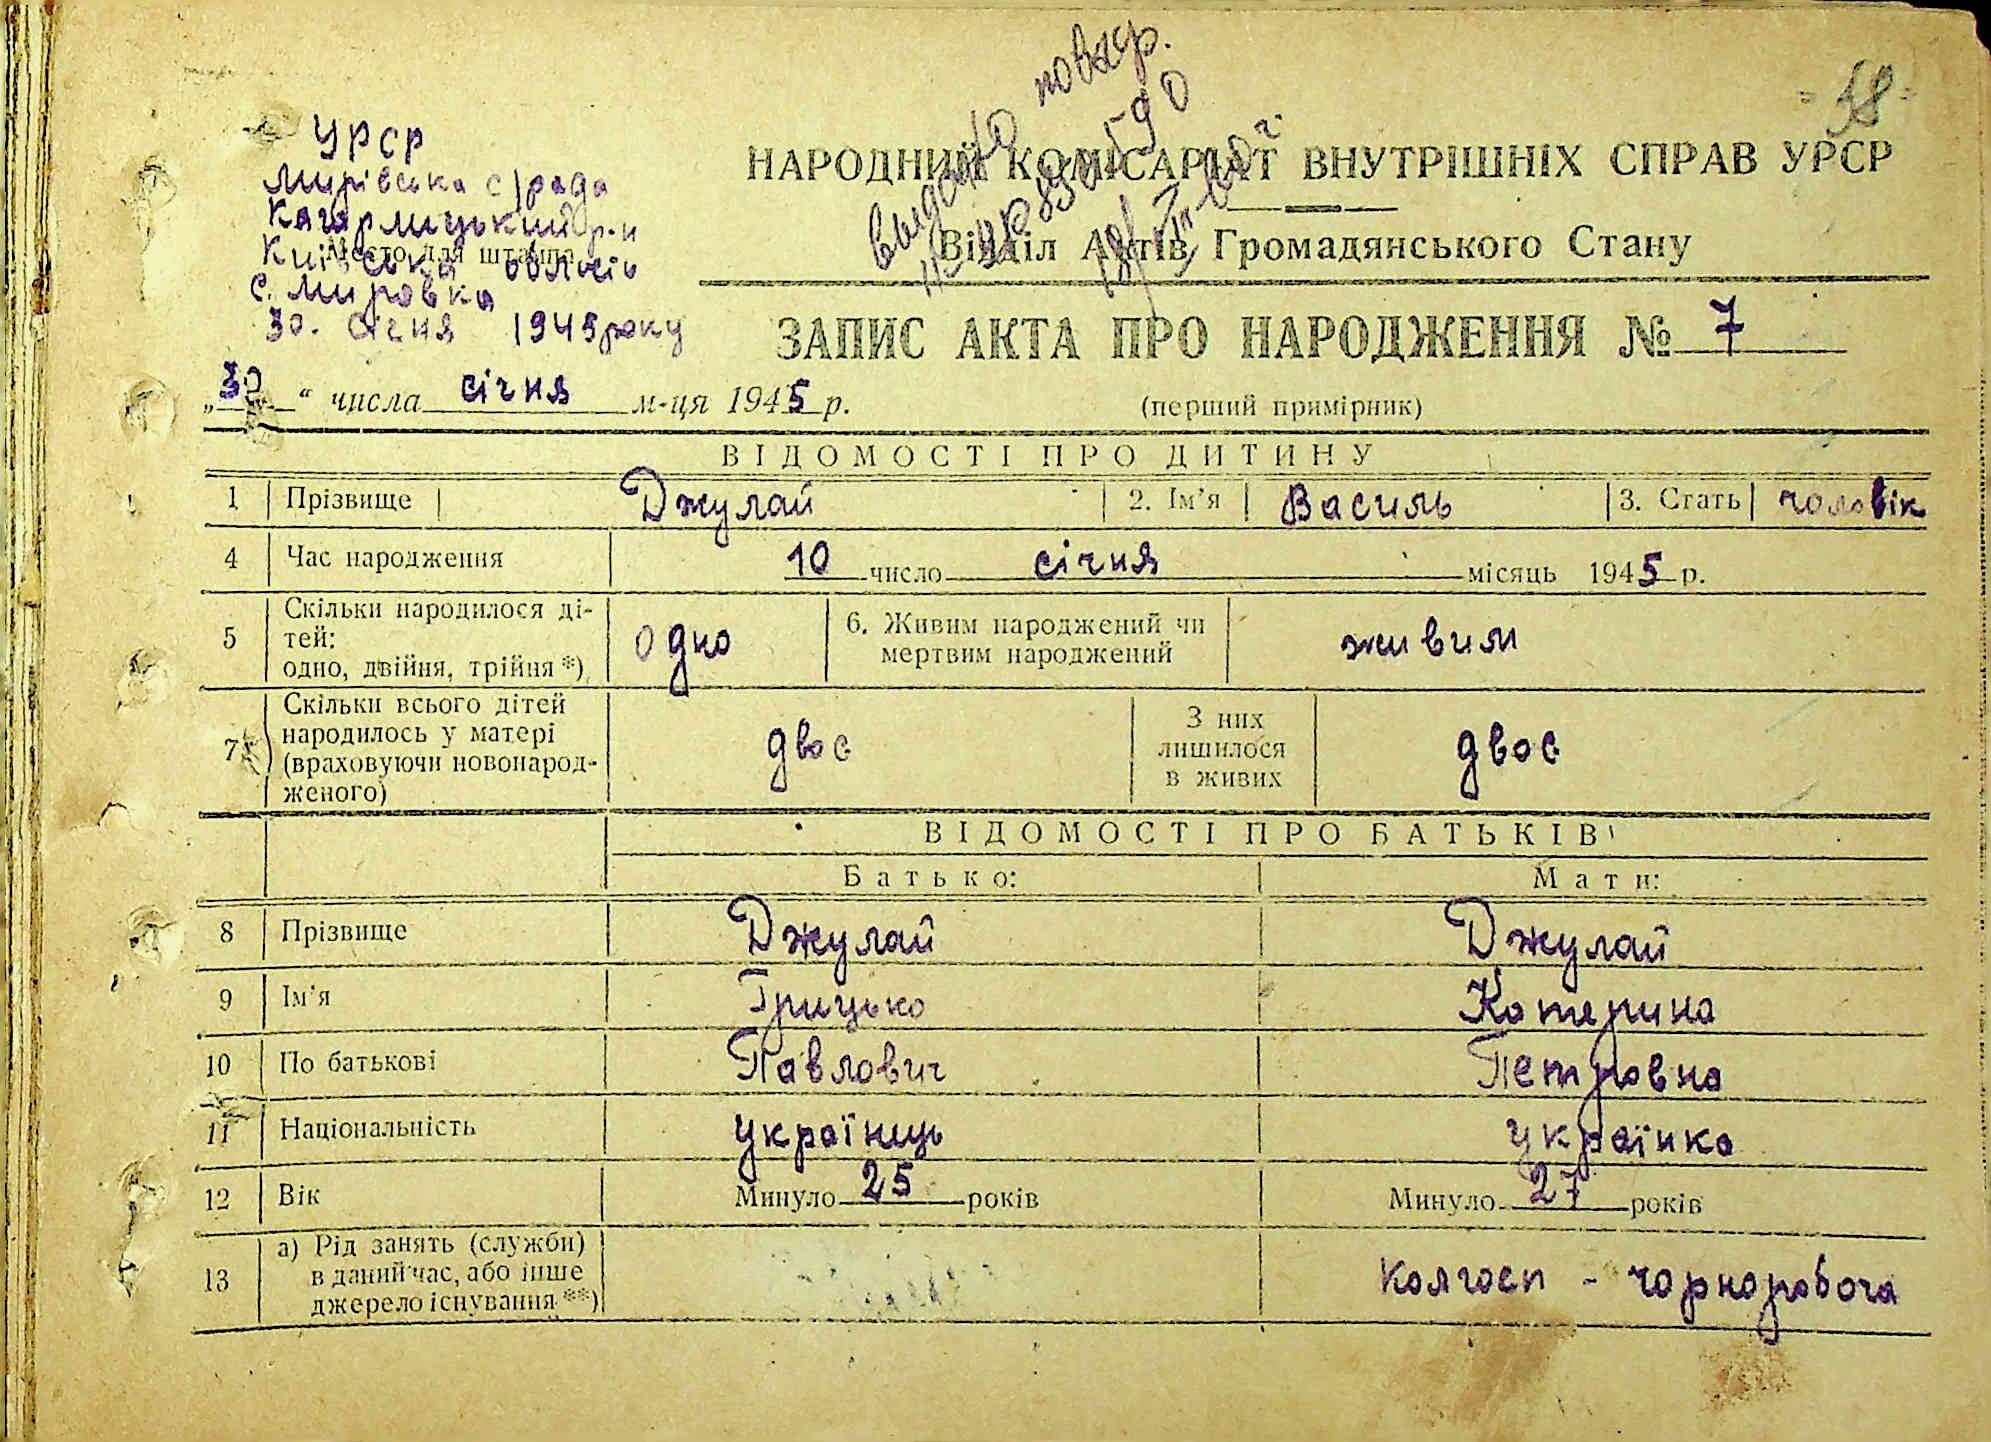 58
УРСР
Мирівська с/рада
Кагарлицький р-н
Київська область
с. Мировка
30. січня 1945 року
Место для штампа
выдано повтор.
НАРОДНИЙ КОМІСАРІАТ ВНУТРІШНІХ СПРАВ УРСР
Відділ Актів Громадянського Стану
ЗАПИС АКТА ПРО НАРОДЖЕННЯ № 7
„30“ числа січня м-ця 1945 р. (перший примірник)
ВІДОМОСТІ ПРО ДИТИНУ
1 Прізвище Джулай 2. Ім'я Василь 3. Стать чоловік
4 Час народження 10 число січня місяць 1945 р.
5 Скільки народилося ді-
тей:
одно, двійня, трійня *) одно 6. Живим народжений чи
мертвим народжений живим
7 Скільки всього дітей
народилось у матері
(враховуючи новонарод-
женого) двоє З них
лишилося
в живих двоє
ВІДОМОСТІ ПРО БАТЬКІВ
Батько: Мати:
8 Прізвище Джулай Джулай
9 Ім'я Грицько Катерина
10 По батькові Павлович Петровна
11 Національність українць українка
12 Вік Минуло 25 років Минуло 27 років
13 а) Рід занять (служби)
в даний час, або інше
джерело існування **) Колгосп - чорноробоча